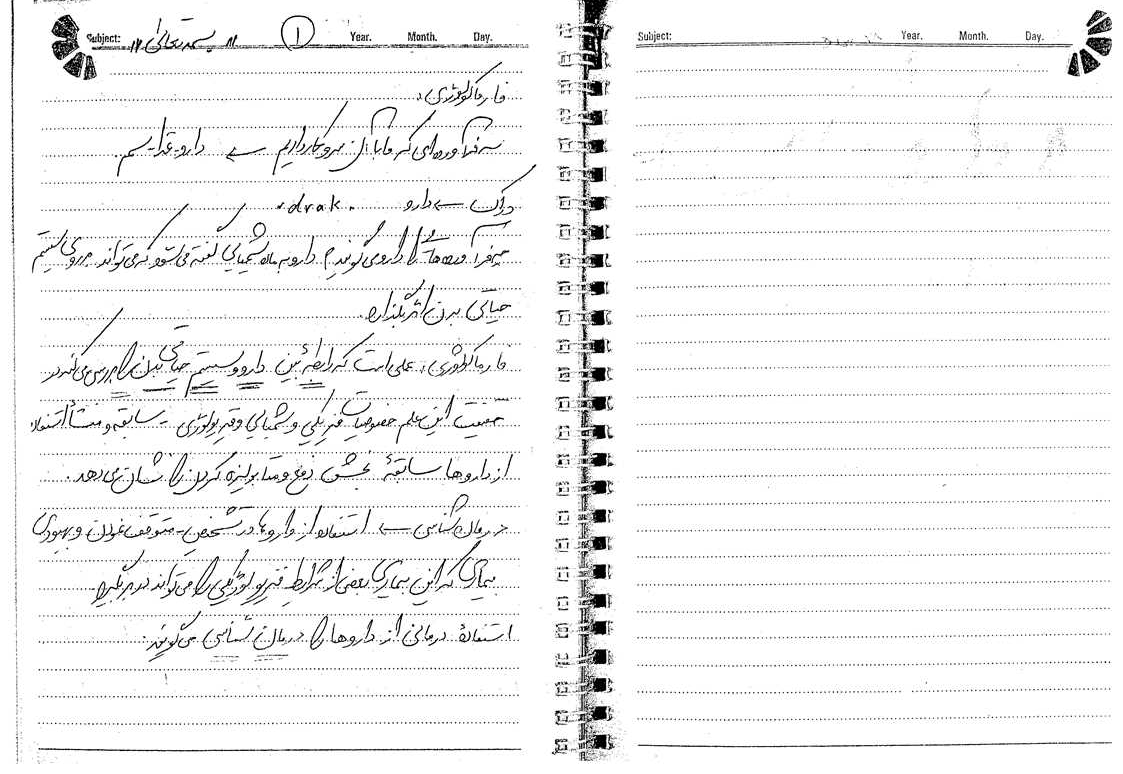 Subject: "بسمه تعالی" ۱ Year. Month. Day.
فارماکولوژی:
سه فرآورده‌ای که ما با آن سروکار داریم ← دارو-غذا-سم
دراگ ← دارو .drak.
چه فرآورده‌هایی را دارو می‌گویند؟ دارو به ماده شیمیایی گفته می‌شود که می‌تواند بر روی سیستم
حیاتی بدن اثر بگذارد.
فارماکولوژی: علمی است که رابطهٔ بین دارو و سیستم حیاتی بدن را بررسی می‌کند در
حقیقت این علم خصوصیات فیزیکی و شیمیایی و فیزیولوژی - سابقه و منشأ استفاده
از داروها سابقهٔ پخش دفع و متابولیزه کردن را نشان می‌دهد.
درمان‌شناسی ← استفاده از داروها در تشخیص - متوقف نمودن و بهبودی
بیماری که این بیماری بعضی از شرایط فیزیولوژیکی را می‌تواند در بر بگیرد
استفادهٔ درمانی از داروها را درمان شناسی می‌گویند.
Subject: Year. Month. Day.